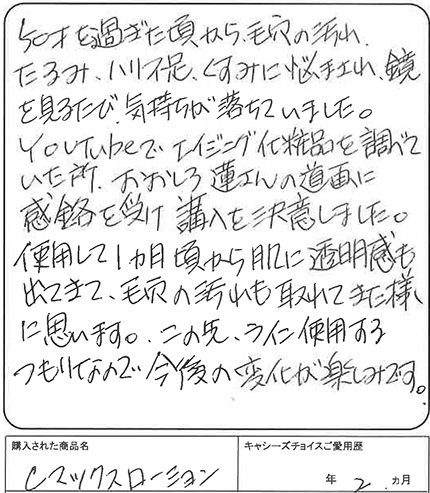 50才を過ぎた頃から、毛穴の汚れ、
たるみ、ハリ不足、くすみに悩まされ、鏡
を見るたび、気持ちが落ちていました。
YouTubeで エイジング化粧品を調べて
いた所、おおしろ蓮さんの道画に
感銘を受け 購入を決意しました。
使用して1カ月頃から肌に透明感も
出てきて、毛穴の汚れも取れてきた様
に思います。この先、ライン使用する
つもりなので今後の変化が楽しみです。
購入された商品名
キャシーズチョイスご愛用歴
Cマックスローション
年 2 ヵ月